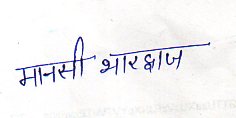 मानसी भारद्वाज